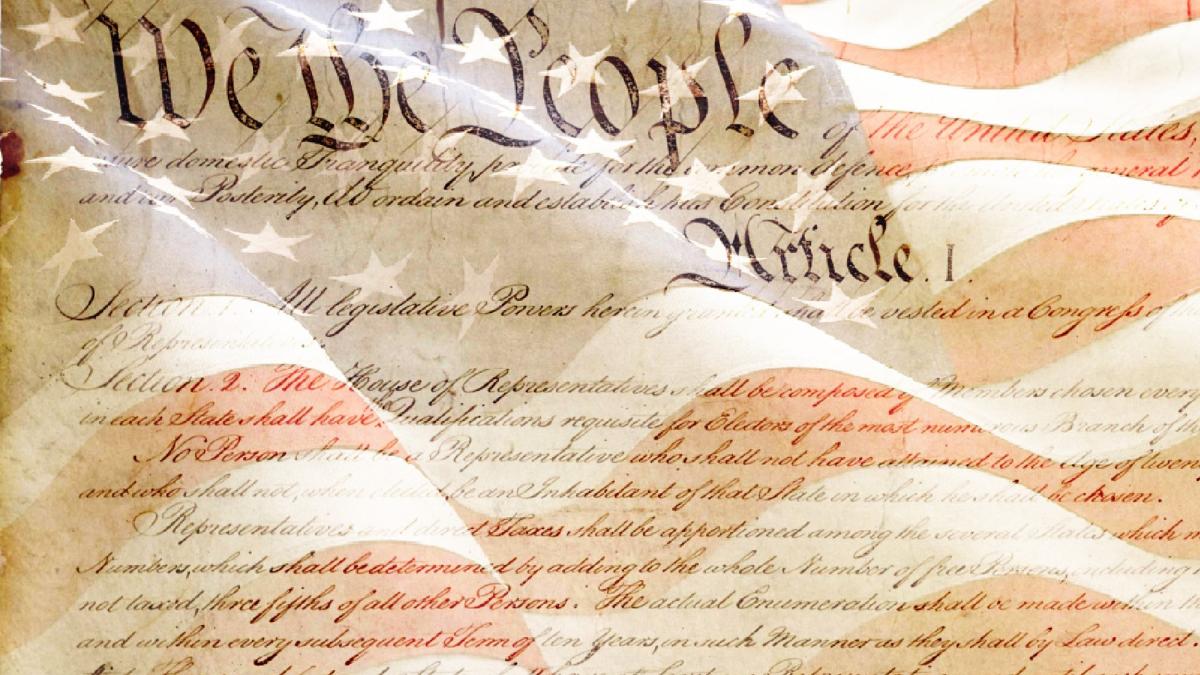 We the People of the United States,
sure domestic Tranquility, provide for the common defence, general
and our Posterity, do ordain and establish this Constitution for the United States
Article. I.
Section. 1. All legislative Powers herein granted shall be vested in a Congress of
of Representatives.
Section. 2. The House of Representatives shall be composed of Members chosen every
in each State shall have Qualifications requisite for Electors of the most numerous Branch of
No Person shall be a Representative who shall not have attained to the Age of twen
and who shall not, when elected, be an Inhabitant of that State in which he shall be chosen.
Representatives and direct Taxes shall be apportioned among the several States which m
Numbers, which shall be determined by adding to the whole Number of free Persons, including
not taxed, three fifths of all other Persons. The actual Enumeration shall be made within
and within every subsequent Term of ten Years, in such Manner as they shall by Law direct